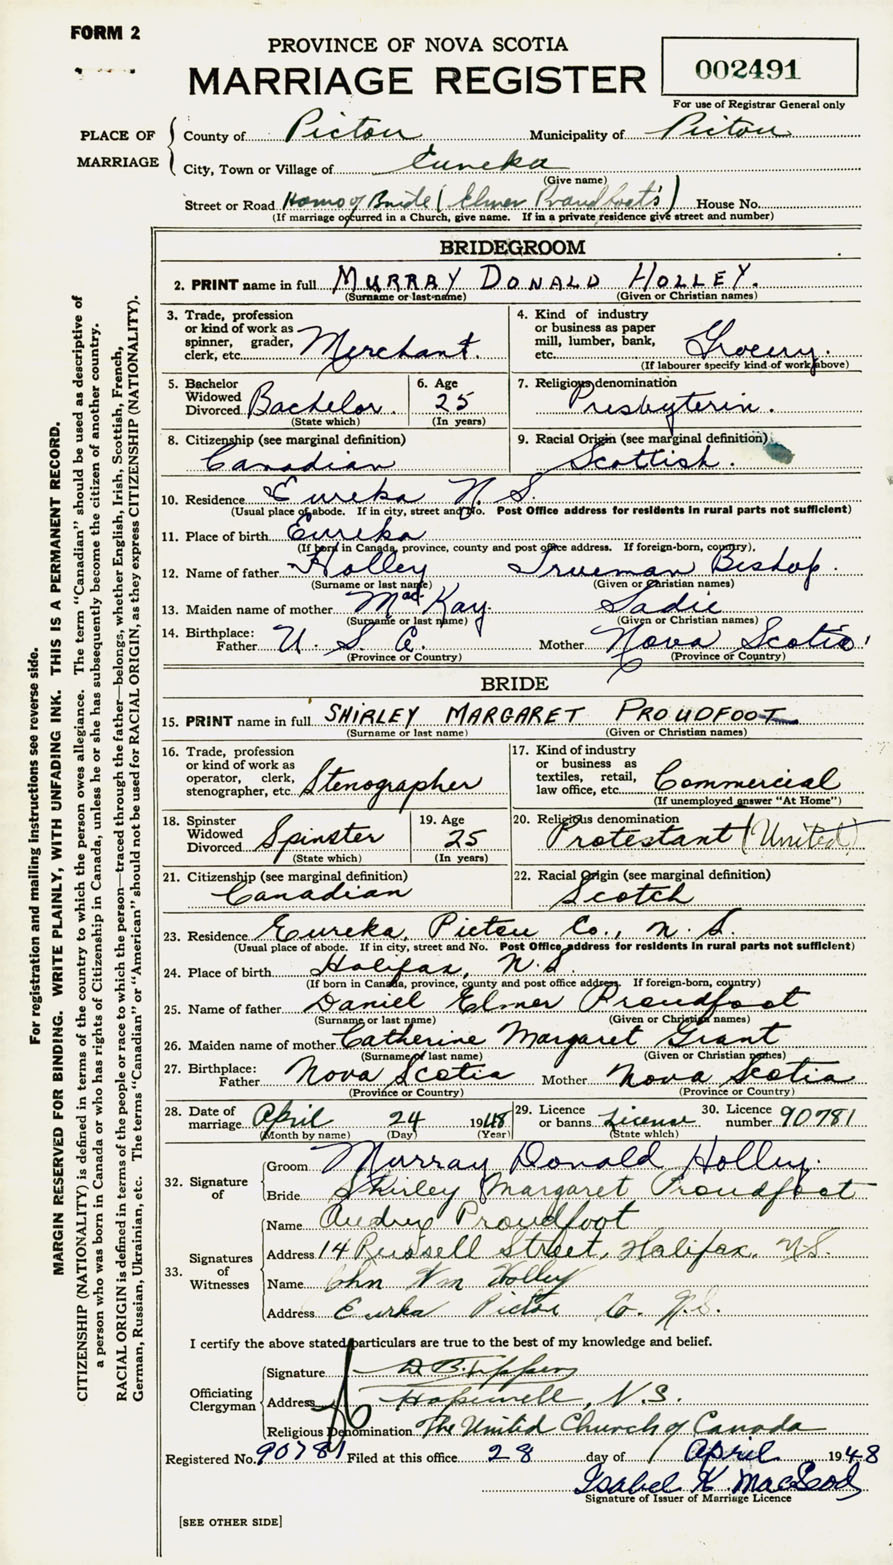 FORM 2
PROVINCE OF NOVA SCOTIA
MARRIAGE REGISTER
002491
For use of Registrar General only
PLACE OF MARRIAGE
County of Pictou Municipality of Pictou
City, Town or Village of Eureka
(Give name)
Street or Road Home of Bride (Elmer Proudfoot's) House No.
(If marriage occurred in a Church, give name. If in a private residence give street and number)
BRIDEGROOM
2. PRINT name in full MURRAY DONALD HOLLEY.
(Surname or last name) (Given or Christian names)
3. Trade, profession or kind of work as spinner, grader, clerk, etc. Merchant.
4. Kind of industry or business as paper mill, lumber, bank, etc. Grocery.
(If labourer specify kind of work above)
5. Bachelor Widowed Divorced Bachelor.
(State which)
6. Age 25
(In years)
7. Religious denomination Presbyterin.
8. Citizenship (see marginal definition)
Canadian
9. Racial Origin (see marginal definition)
Scottish.
10. Residence Eureka N. S.
(Usual place of abode. If in city, street and No. Post Office address for residents in rural parts not sufficient)
11. Place of birth Eureka
(If born in Canada, province, county and post office address. If foreign-born, country).
12. Name of father Holley Trueman Bishop.
(Surname or last name) (Given or Christian names)
13. Maiden name of mother MacKay. Sadie
(Surname or last name) (Given or Christian names)
14. Birthplace: Father U. S. A. Mother Nova Scotia
(Province or Country) (Province or Country)
BRIDE
15. PRINT name in full SHIRLEY MARGARET PROUDFOOT
(Surname or last name) (Given or Christian names)
16. Trade, profession or kind of work as operator, clerk, stenographer, etc. Stenographer
17. Kind of industry or business as textiles, retail, law office, etc. Commercial
(If unemployed answer "At Home")
18. Spinster Widowed Divorced Spinster
(State which)
19. Age 25
(In years)
20. Religious denomination
Protestant (United)
21. Citizenship (see marginal definition)
Canadian
22. Racial Origin (see marginal definition)
Scotch
23. Residence Eureka, Pictou Co., N. S.
(Usual place of abode. If in city, street and No. Post Office address for residents in rural parts not sufficient)
24. Place of birth Halifax, N.S.
(If born in Canada, province, county and post office address. If foreign-born, country)
25. Name of father Daniel Elmer Proudfoot
(Surname or last name) (Given or Christian names)
26. Maiden name of mother Catherine Margaret Grant
(Surname of last name) (Given or Christian names)
27. Birthplace: Father Nova Scotia Mother Nova Scotia
(Province or Country) (Province or Country)
28. Date of marriage April 24 1948
(Month by name) (Day) (Year)
29. Licence or banns License
(State which)
30. Licence number 90781
32. Signature of
Groom Murray Donald Holley.
Bride Shirley Margaret Proudfoot
33. Signatures of Witnesses
Name Audrey Proudfoot
Address 14 Russell Street, Halifax, N.S.
Name John Wm Holley
Address Eurka Pictou Co. N.S.
I certify the above stated particulars are true to the best of my knowledge and belief.
Officiating Clergyman
Signature
Address Hopewell, N.S.
Religious Denomination The United Church of Canada
Registered No. 90781 Filed at this office 28 day of April 1948
Isabel K MacLeod
Signature of Issuer of Marriage Licence
[SEE OTHER SIDE]
For registration and mailing instructions see reverse side.
MARGIN RESERVED FOR BINDING. WRITE PLAINLY, WITH UNFADING INK. THIS IS A PERMANENT RECORD.
CITIZENSHIP (NATIONALITY) is defined in terms of the country to which the person owes allegiance. The term "Canadian" should be used as descriptive of
a person who was born in Canada or who has rights of Citizenship in Canada, unless he or she has subsequently become the citizen of another country.
RACIAL ORIGIN is defined in terms of the people or race to which the person—traced through the father—belongs, whether English, Irish, Scottish, French,
German, Russian, Ukrainian, etc. The terms "Canadian" or "American" should not be used for RACIAL ORIGIN, as they express CITIZENSHIP (NATIONALITY).